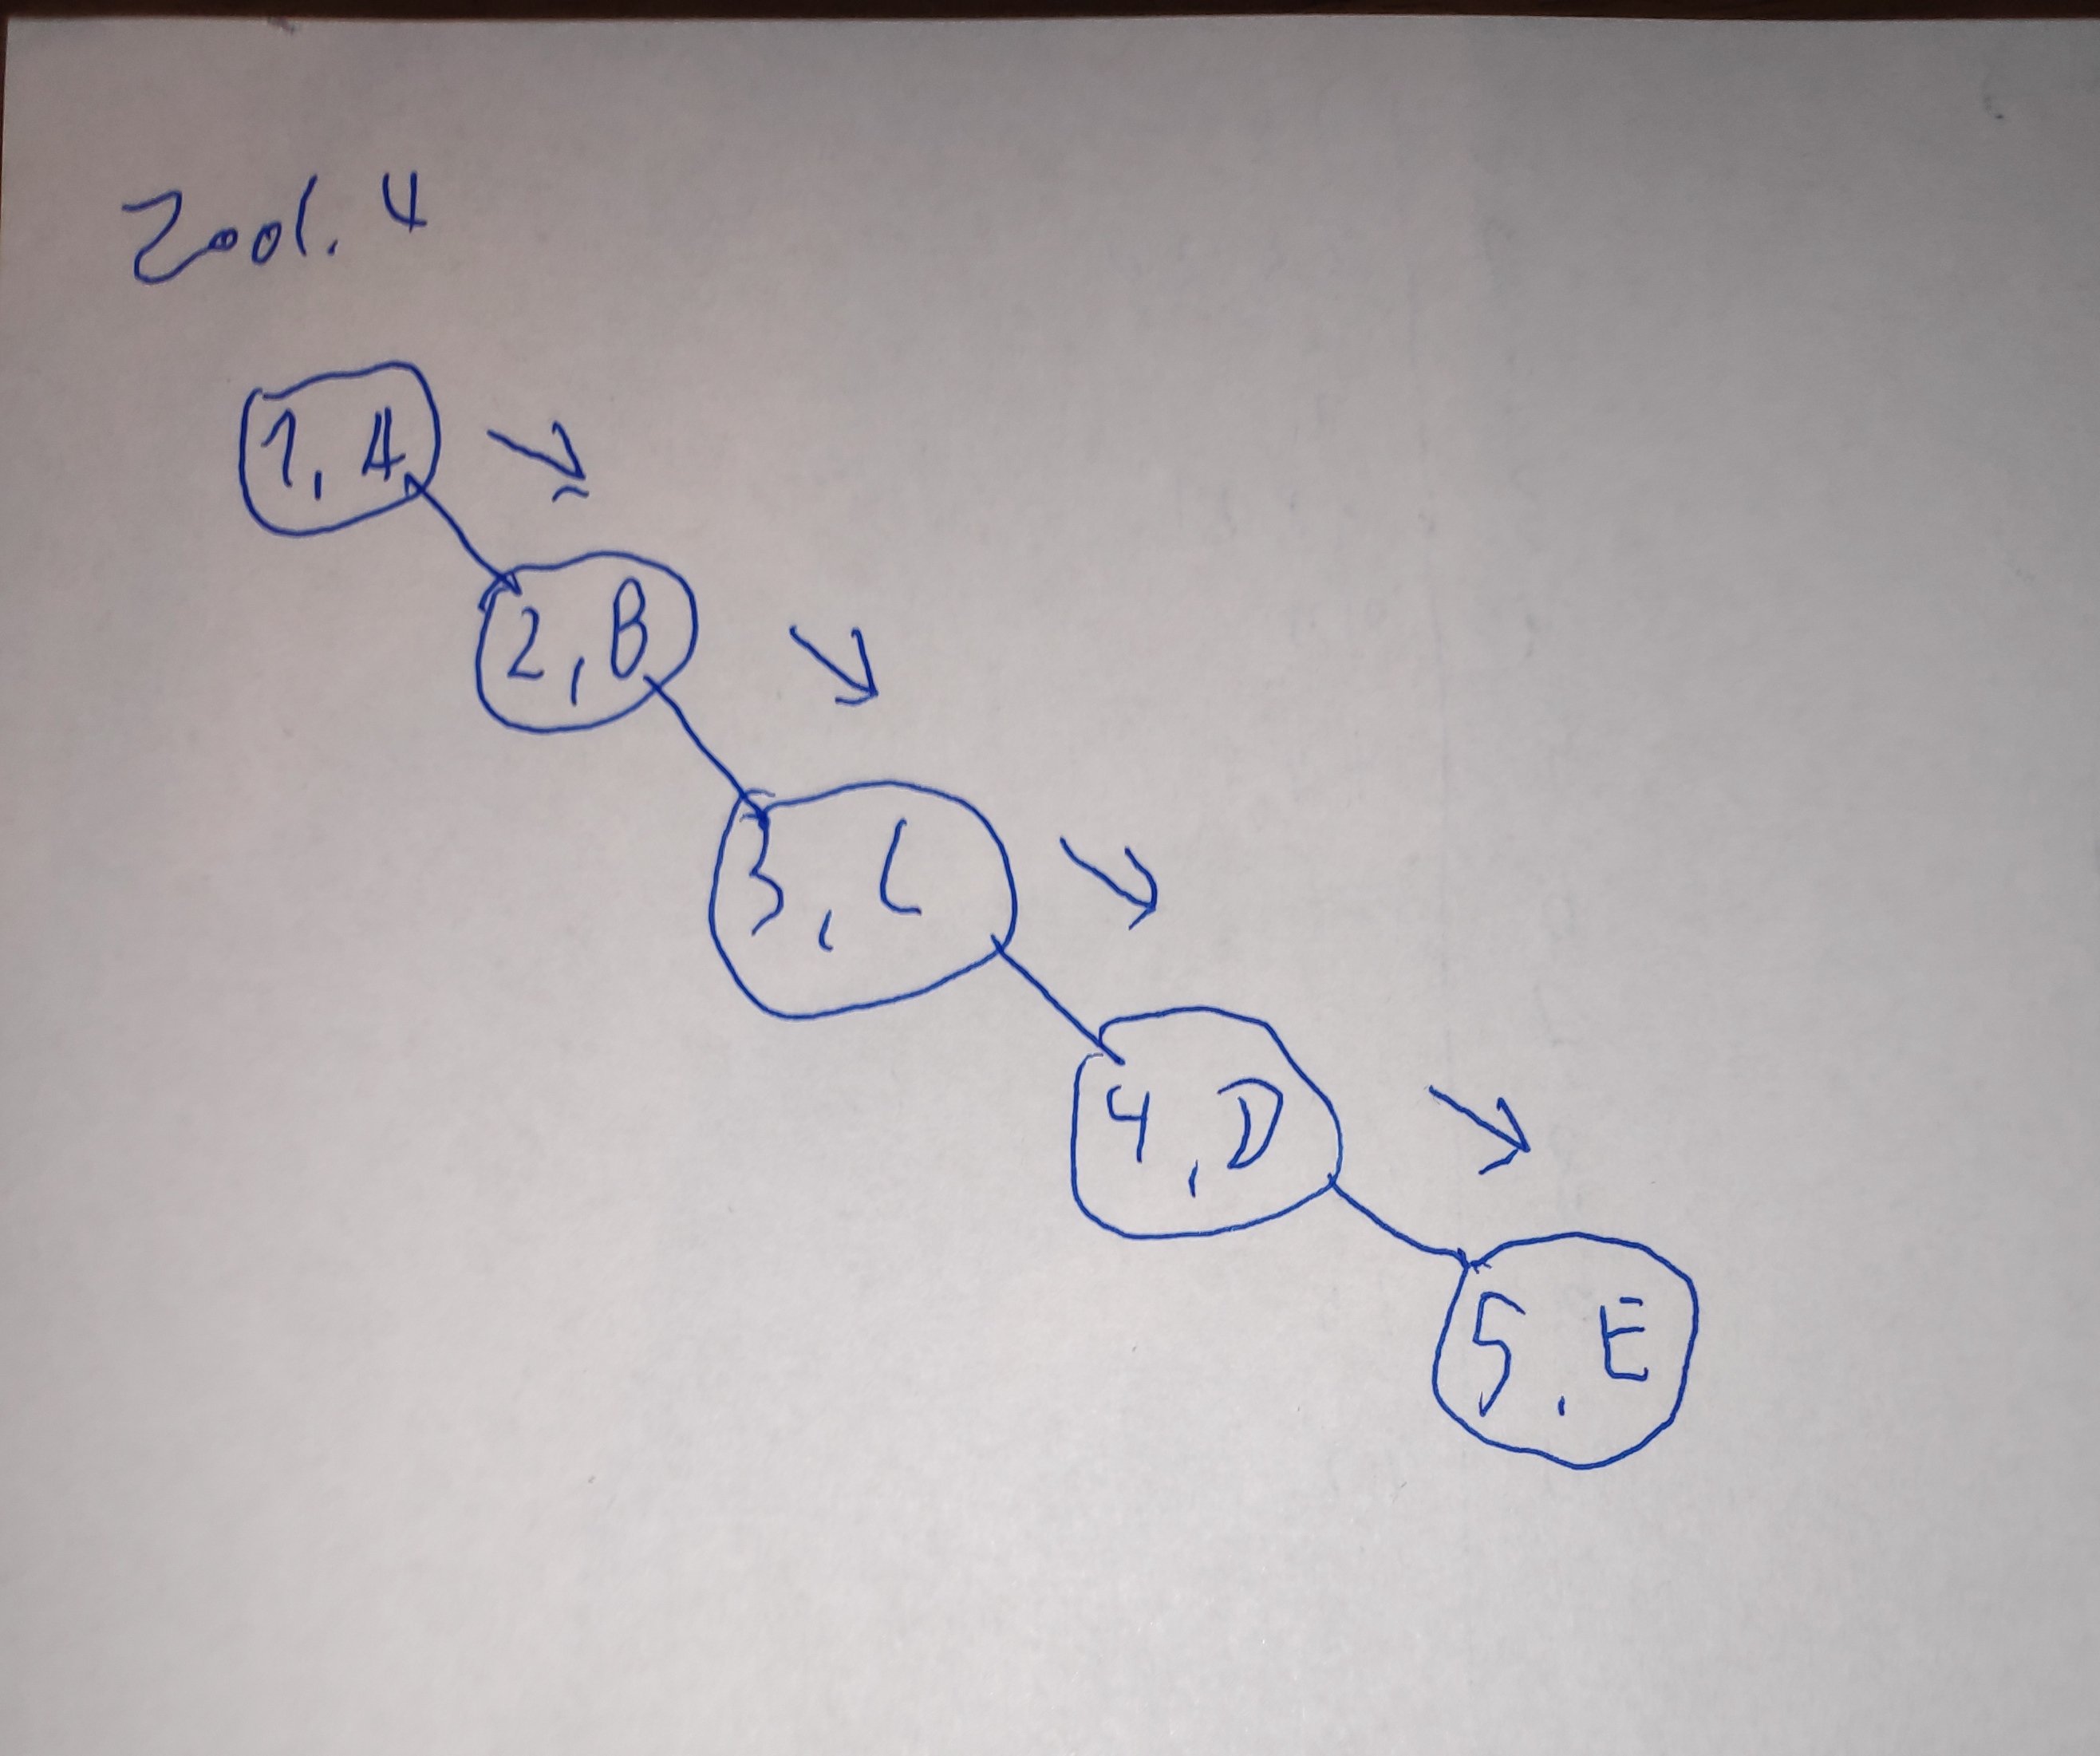 Zool. 4
1, A
2, B
3, C
4, D
5, E